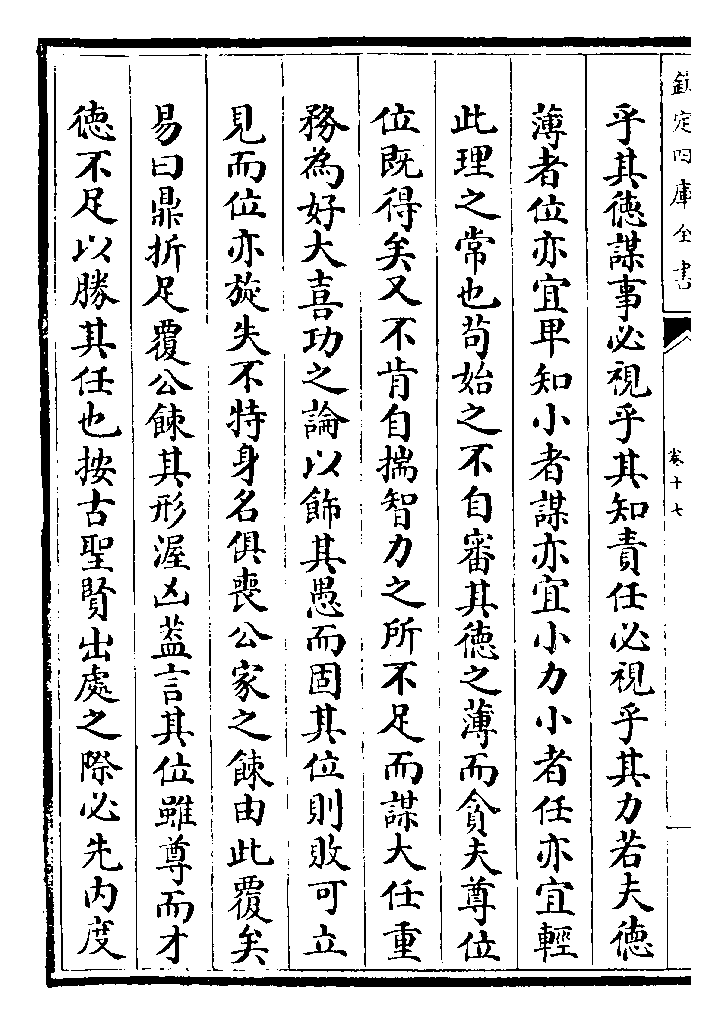 欽定四庫全書
卷十七
乎其徳謀事必視乎其知責任必視乎其力若夫徳
薄者位亦宜卑知小者謀亦宜小力小者任亦宜輕
此理之常也茍始之不自審其徳之薄而貪夫尊位
位既得矣又不肯自揣智力之所不足而謀大任重
務為好大喜功之論以飾其愚而固其位則敗可立
見而位亦旋失不特身名俱喪公家之餗由此覆矣
易曰鼎折足覆公餗其形渥凶葢言其位雖尊而才
徳不足以勝其任也按古聖賢出處之際必先内度